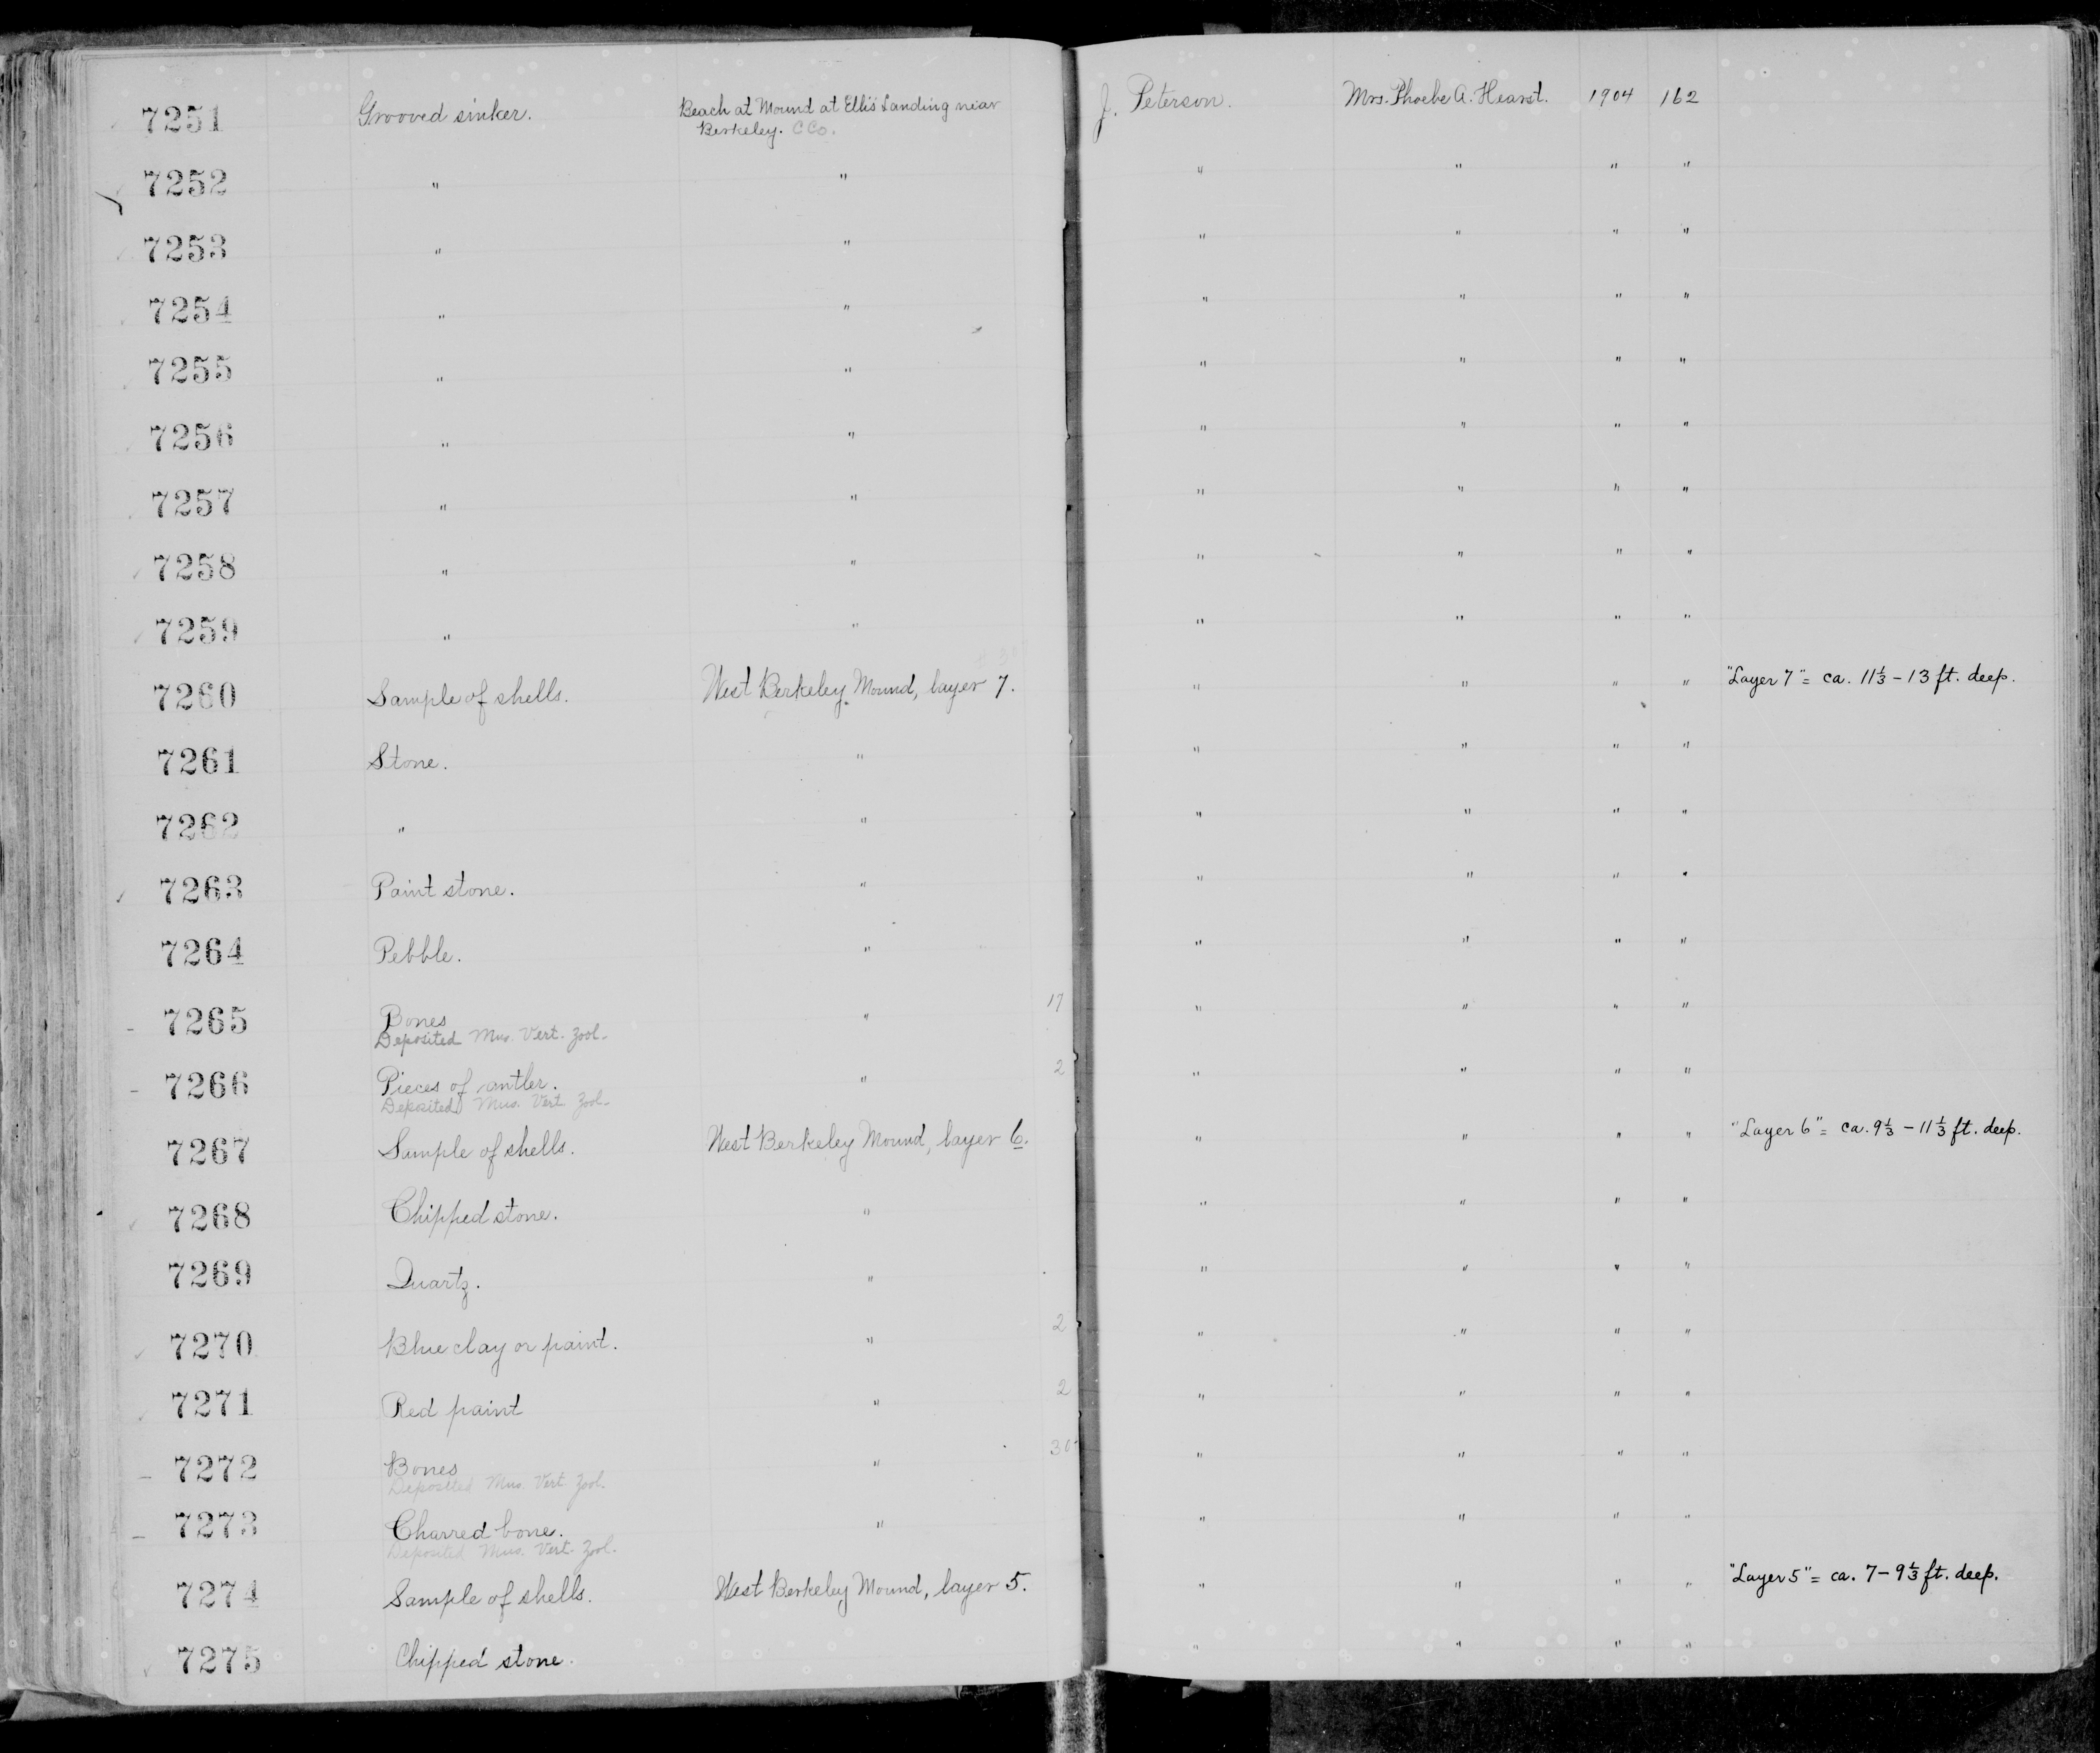 7251 Grooved sinker. Beach at Mound at Ellis Landing near J. Peterson. Mrs. Phoebe A. Hearst. 1904 162
Berkeley. C Co.
7252 " " " " " "
7253 " " " " " "
7254 " " " " " "
7255 " " " " " "
7256 " " " " " "
7257 " " " " " "
7258 " " " " " "
7259 " " " " " "
7260 Sample of shells. West Berkeley Mound, layer 7. " " " " "Layer 7" = ca. 11⅓ – 13 ft. deep.
7261 Stone. " " " " "
7262 " " " " " "
7263 Paint stone. " " " " "
7264 Pebble. " " " " "
7265 Bones " 17 " " " "
Deposited Mus. Vert. Zool.
7266 Pieces of antler. " 2 " " " "
Deposited Mus. Vert. Zool.
7267 Sample of shells. West Berkeley Mound, layer 6. " " " " "Layer 6" = ca. 9⅓ – 11⅓ ft. deep.
7268 Chipped stone. " " " " "
7269 Quartz. " " " " "
7270 Blue clay or paint. " 2 " " " "
7271 Red paint " 2 " " " "
7272 Bones " 30 " " " "
Deposited Mus. Vert. Zool.
7273 Charred bone. " " " " "
Deposited Mus. Vert. Zool.
7274 Sample of shells. West Berkeley Mound, layer 5. " " " " "Layer 5" = ca. 7 – 9⅓ ft. deep.
7275 Chipped stone. " " " "